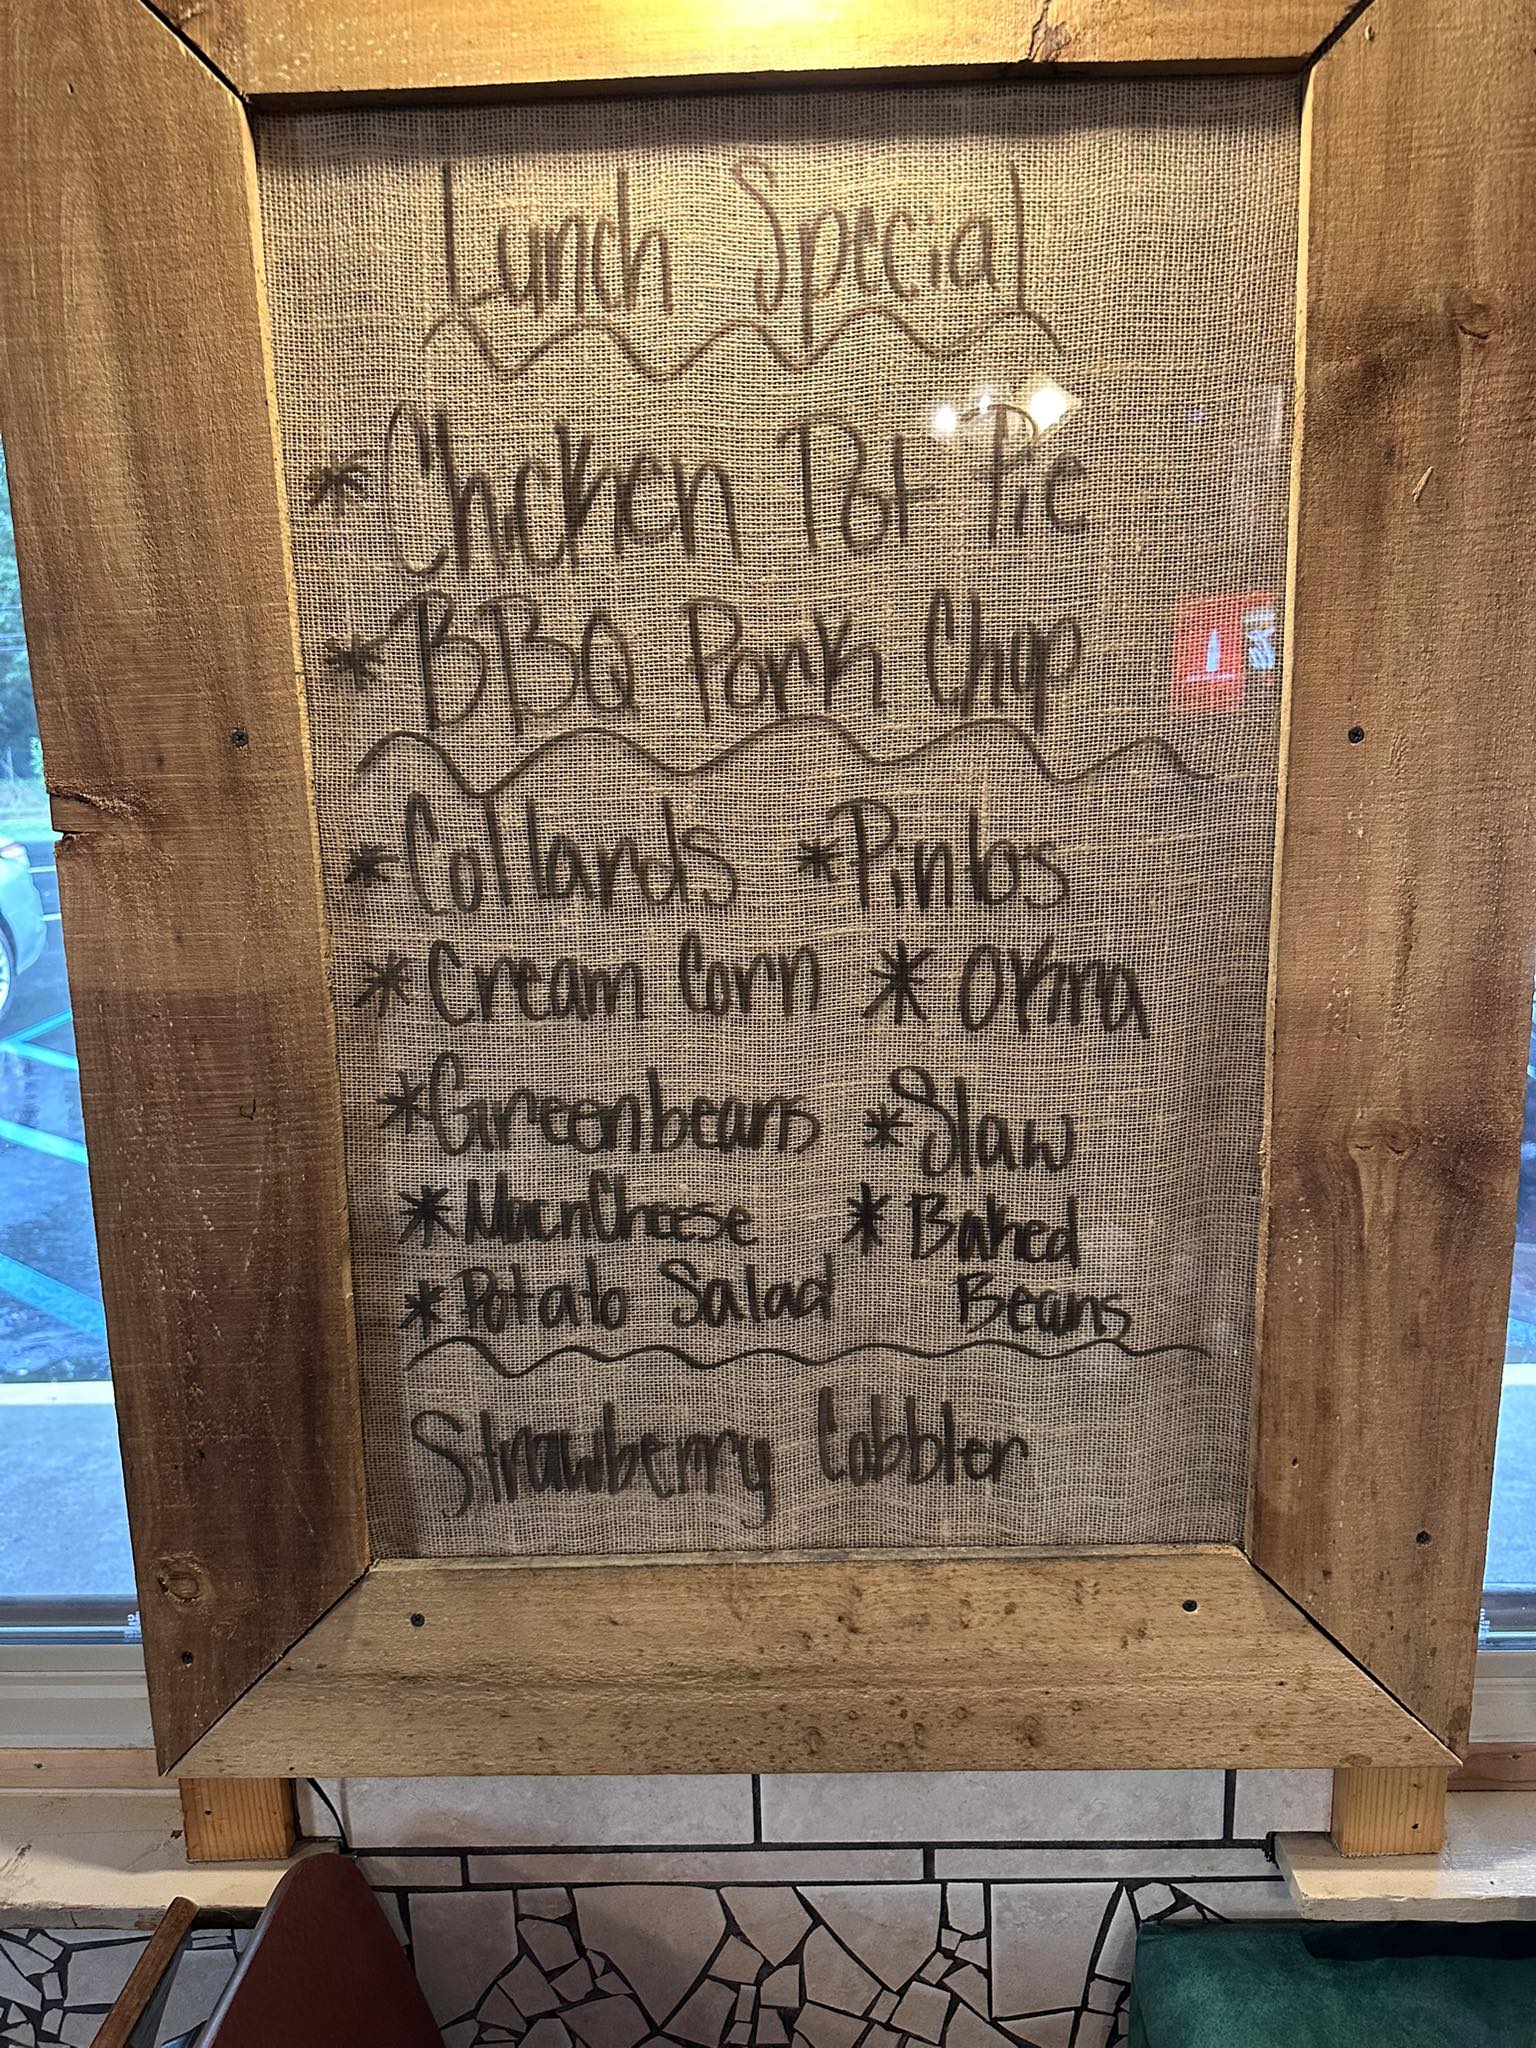 Lunch Special
* Chicken Pot Pie
* BBQ Pork Chop
* Collards * Pintos
* Cream Corn * Okra
* Greenbeans * Slaw
* MacnCheese * Baked
* Potato Salad Beans
Strawberry Cobbler